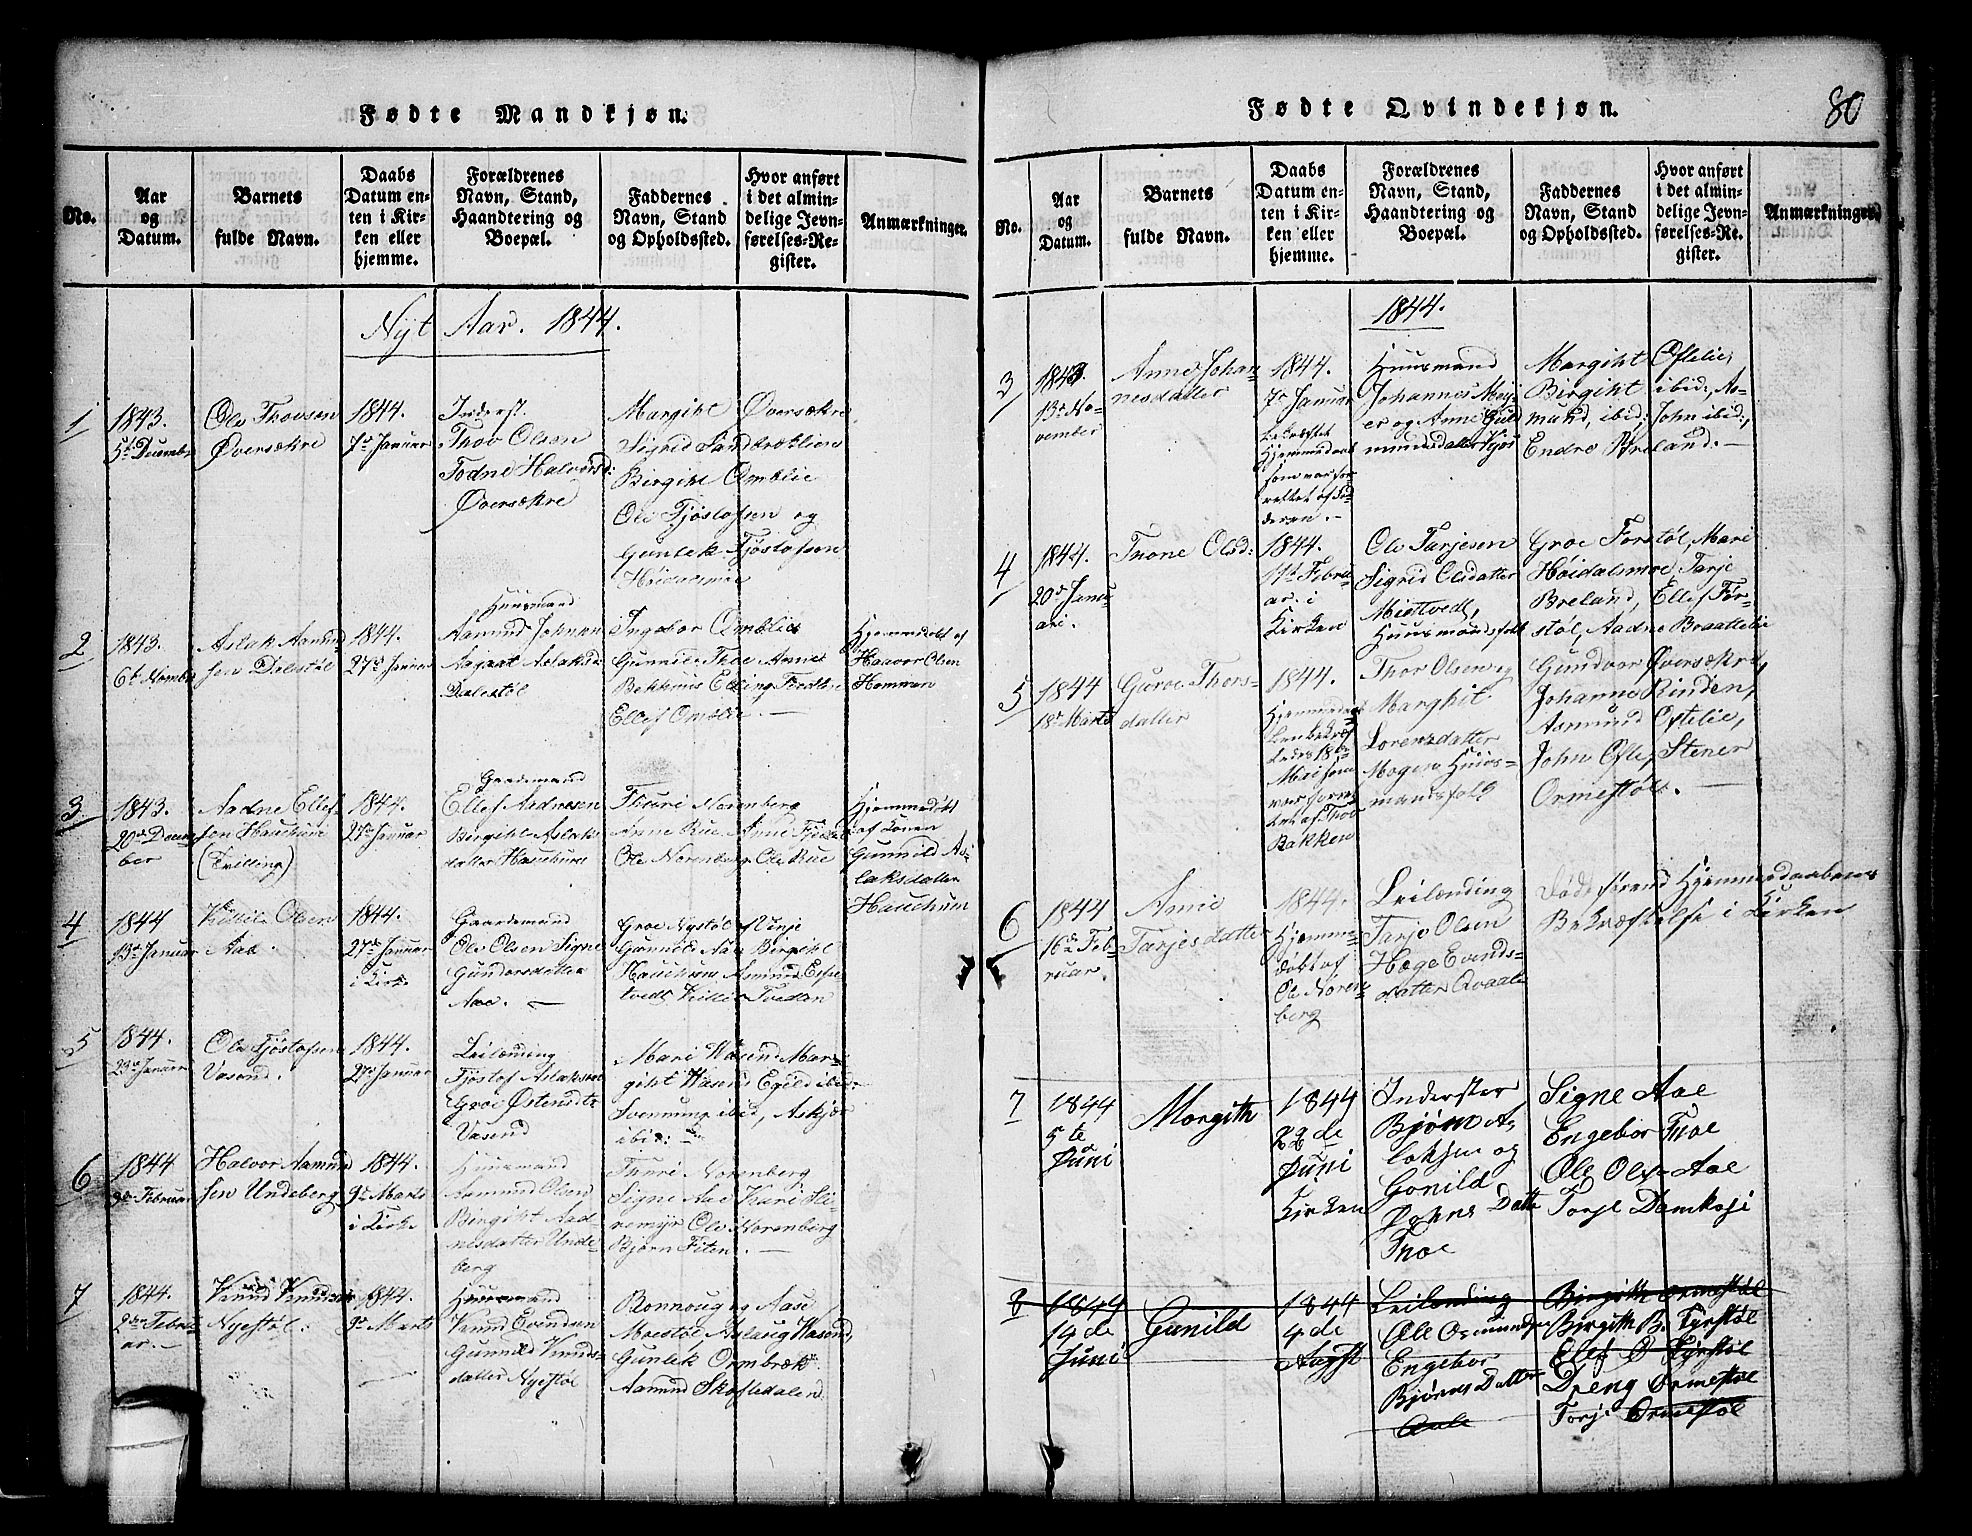 Fødte Mandkjøn.
No.
Aar
og
Datum.
Barnets
fulde Navn.
Daabs
Datum en-
ten i Kir-
ken eller
hjemme.
Forældrenes
Navn, Stand,
Haandtering og
Boepæl.
Faddernes
Navn, Stand
og Opholdssted.
Hvor anført
i det almin-
delige Jevn-
førelses-Re-
gister.
Anmærkninger.
Nyt Aar. 1844.
1
1843.
5te Decembr
Ole Thovsen
Øversækre
1844.
7de Januar
Inderst.
Thov Olsen
Todne Halvorsd:
Øversækre
Margiht Øversækre
Sigrid Sandbræklien
Birgiht Omblie
Ole Fjøstofsen og
Gunlek Fjøstofsen
Høidalsmoe
2
1843.
6te Novmbr
Aslak Aamund
sen Dalestøl
1844.
27de Januar
Huusmand
Aamund Johnsen
Aagaat Aslaksda
Dalestøl
Ingebor Omblie
Gunnild Thoe Anne
Bekhuus Elling
Ellef Omblie. —
Hjemmedøbt af
Haavor Olsen
3
1843.
20de Decem-
ber
Aadne Ellef-
sen Hauchum
(Tvilling)
1844.
27de Januar
Gaardmand
Ellef Aadnesen
Birgiht Aslaks
datter Hauchum
Thuri Norenberg
Anne Rue Anne
Ole Norenberg Ole Rue
Hjemmedøbt
af Konen
Gunnild As-
laksdatter
Hauchum
4
1844
13de Januar
Kittil Olsen
Aae.
1844.
27de Januar
i Kirk.
Gaardemand
Ole Olsen Signe
Gundersdatter
Aae. —
Groe Nystøl af Vinje
Gunnild Aae Birgiht
Hauchum Aamund
tvedt Kittil Tveden
5
1844.
23de Januar
Ole Fjøstofsen
Vasend.
1844.
27de Januar
Leilænding
Fjøstof Aslaksen
Groe Østensdtr
Vasend
Mari Vasend Mar-
giht Vasend Egild ibid
Svennung ibid, Askjær
ibid:
6
1844
Februar
Halvor Aamund
sen Undeberg
1844.
9de Marts
i Kirke
Huusmand
Aamund Olsen
Birgiht Aad-
nesdatter Unde-
berg
Thuri Norenberg
Signe Aae Kari
Ole Norenberg
Bjørn Fiten. —
7
1844.
2den Febru-
ar. —
Knud Knudsen
Nyestøl.
1844.
9de Marts
Huusmand
Knud Evendsen
Gunnild Knuds-
datter Nyestøl
Ronnoug og Aase
Moestøl Aslaug Vasend
Gunlek Ormbræk
Aamund Skofledalen
Fødte Qvindekjøn.
80
No.
Aar
og
Datum.
Barnets
fulde Navn.
Daabs
Datum en-
ten i Kir-
ken eller
hjemme.
Forældrenes
Navn, Stand,
Haandtering og
Boepæl.
Faddernes
Navn, Stand
og Opholdssted.
Hvor anført
i det almin-
delige Jevn-
førelses-Re-
gister.
Anmærkninger.
1844.
3
1843.
13de No-
vember
Anne Johan-
nesdatter
1844.
7de Januar
bekræftet
Hjemmedaab
som var for-
rettet af Fa-
deren. —
Huusmand
Johannes
er og Anne Gud
mundsdatter
Margiht Oftelie,
Birgiht ibid: As-
mund, ibid; John ibid:,
Endre Breland. —
4
1844.
20de Janu-
ari.
Tnone Olsd:
1844.
17de Febru-
ar. i
Kirken
Ole Tarjesen
Sigrid Olsdatter
Miestvedt,
Huusmandsfolk
Groe Forstøl, Mari
Høidalsmoe Tarje
Breland, Ellef For-
støl, Aadne Braattelie
5
1844
18de Marts
Guroe Thors-
datter
1844.
Hjemmedaa-
ben bekræf
tedes 18de
Mai som
var forret
tet af Thov
Bakken
Thor Olsen og
Marghit
Lorensdatter
Mogen Huus-
mandsfolk
Gundvor Øversækre,
Johanne Rinden,
Asmund Oftelie,
John Ofte, Stener
Ormestøl. —
6
1844
16de Feb-
ruar.
Anne
Tarjesdatter
1844.
Hjemme-
døbt af
Ole Noren-
berg
Leilænding
Tarje Olsen
Hæge Evends-
datter Qvaale
Død førend Hjemmedaabens
Bekræftelse i Kirken
7
1844
5te
Juni
Morgith
1844
22de
Juni
Kirken
Inderster
Bjørn As
laksen og
Gonild
Johns Datte
Tnoe
Signe Aae
Engebor Tnoe
Ole Olss Aae
Torje Damkaji
8
1844
14de
Juni
Gunild
1844
4de
Augst
Leilending
Ole Osmundsen
Engebor
Bjørns Datter
Birgith Ormestøl
Birgith B. Tyrstøl
Elef O Tyrstøl
Dreng Ormestøl
Torje Ormestøl